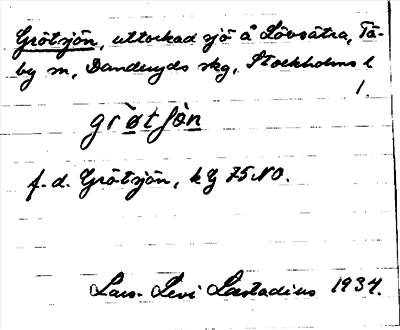 Grötsjön, uttorkad sjö å Lövsätra, Tä-
by sn, Danderyds skg, Stockholms l
1.
grø̀tʃòn
f. d. Grötsjön, k G 75 NO.
Lars-Levi Læstadius 1934.